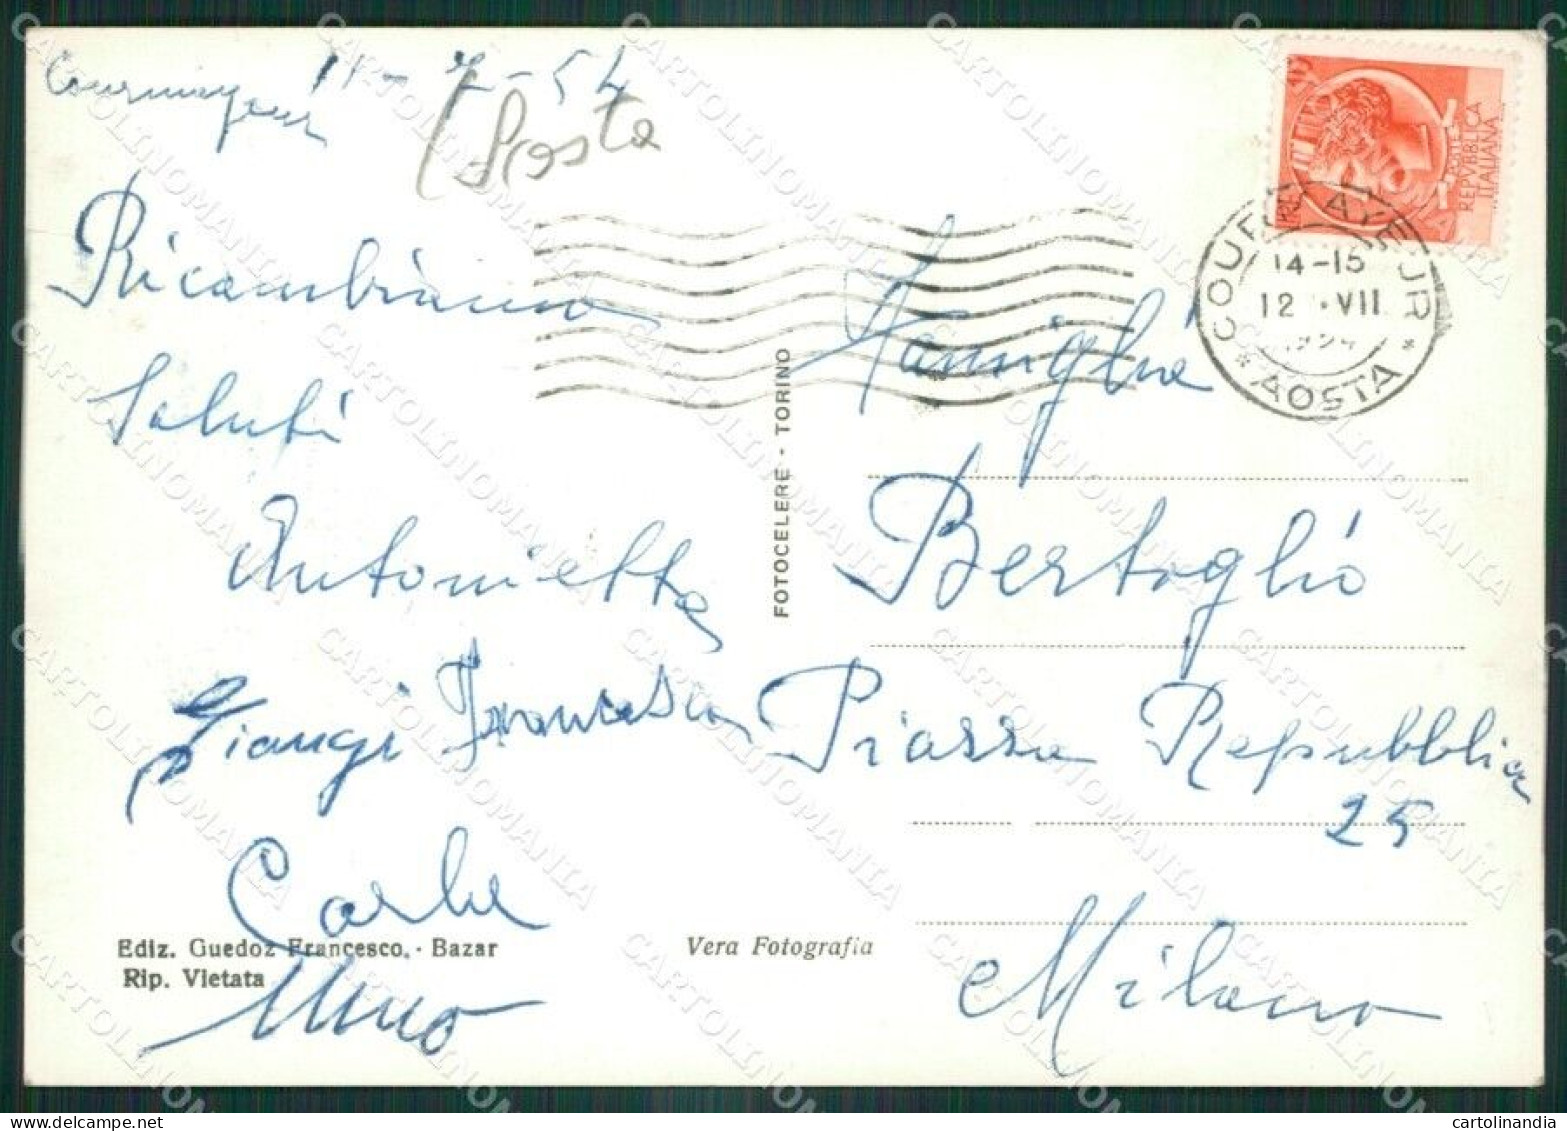 Courmayeur 11-7-54
(Aosta
Ricambiamo
Saluti
Antonietta
Giangi Francesca
Carla
Ediz. Guedoz Francesco. - Bazar
Rip. Vietata
Vera Fotografia
FOTOCELERE - TORINO
POSTE
REPVBBLICA
ITALIANA
COURMAYEUR
14-15
12 VII
1954
* AOSTA *
Famiglia
Bertoglio
Piazza Repubblica
25
Milano
CARTOLINOMANIA
cartolinandia